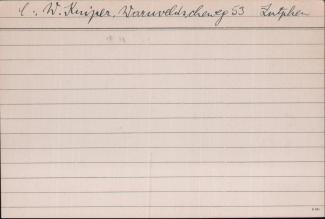 C. W. Kuiper, Warnveldscheweg 53 Zutphen